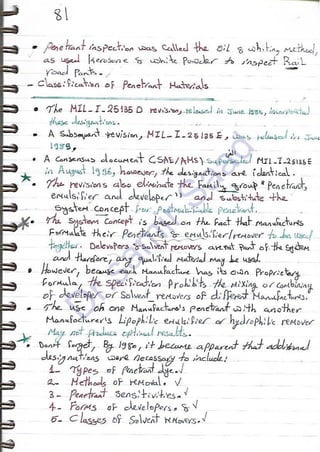 81
• Penetrant inspection was called the Oil & whiting Method,
as used Kerosene & white Powder to inspect Rail
road Parts.
- Classification of Penetrant Materials
• The MIL-I-25135 D revision, released in June 1986, incorporated
these designations.
• A Subsequent revision, MIL-I-25135E, was released in June
1989,
• A Consensus document (SAE/AMS) superseded MIL-I-25135E
in August 1996, however, the designations are identical.
• The revisions also eliminate the Family group "Penetrant,
emulsifier and developer" and substitute the
System Concept for Postemulsifiable penetrant.
• The System Concept is based on the Fact that manufactures
Formulate their Penetrants & emulsifier/remover to be used
together. Developers & solvent removers are not part of the system
and therefore, any qualified material may be used.
• However, because each Manufacture has its own Proprietary
Formula, the Specification Prohibits the Mixing or combining
of developer or Solvent removers of different Manufactures.
The use of one Manufacture's penetrant with another
Manufacturer's Lipophilic emulsifier or hydrophilic remover
May not Produce optimal results.
• Don't forget, By 1980, it became apparent that additional
designations were necessary to include:
1- Types of Penetrant dye. √
2- Methods of removal. √
3- Penetrant Sensitivities. √
4- Forms of developers. & √
5- Classes of Solvent removers. √